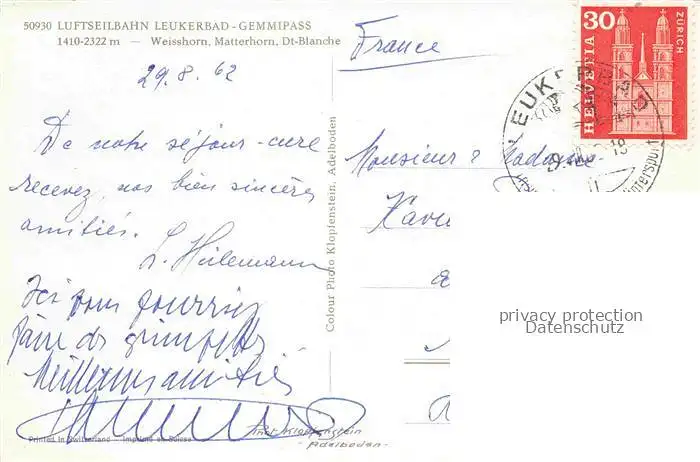 50930 LUFTSEILBAHN LEUKERBAD - GEMMIPASS
1410-2322 m — Weisshorn, Matterhorn, Dt-Blanche
29.8.62
De notre séjour-cure
recevez, nos bien sincères
amitiés.
Ici vous pourriez
faire des grimpettes
Meilleures amitiés
Printed in Switzerland - Imprimé en Suisse
Inst. Klopfenstein
- Adelboden -
Colour Photo Klopfenstein, Adelboden
France
Monsieur & Madame
HELVETIA
30
ZÜRICH
LEUKERBAD
privacy protection
Datenschutz